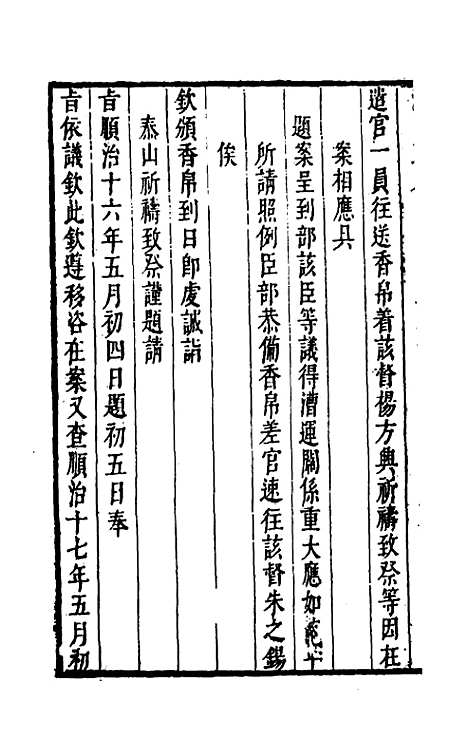 遣官一員往送香帛着該督楊方興祈禱致祭等因在
案相應具
題案呈到部該臣等議得漕運關係重大應如
所請照例臣部恭備香帛差官速往該督朱之錫
俟
欽頒香帛到日卽虔誠詣
泰山祈禱致祭謹題請
旨順治十六年五月初四日題初五日奉
旨依議欽此欽遵移咨在案又查順治十七年五月初